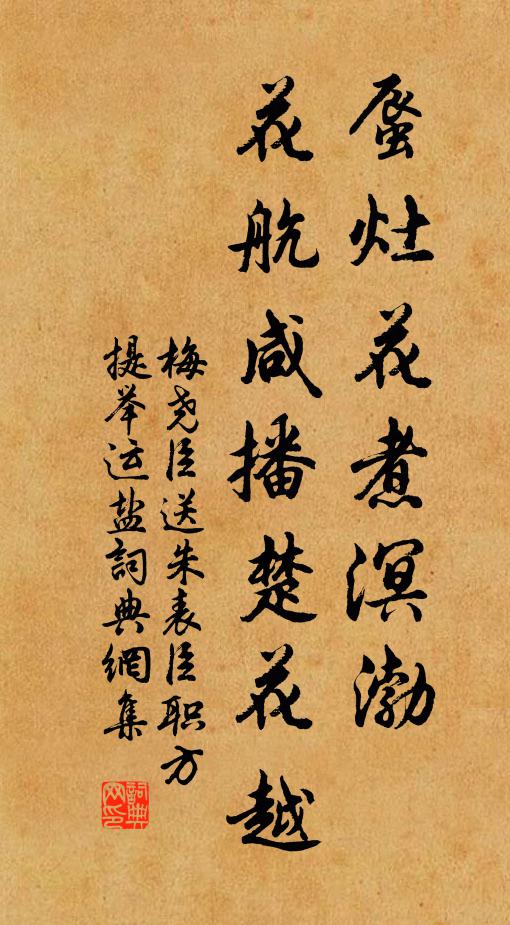 蜃灶花煮溟渤
花航咸播楚花越
梅尧臣送朱表臣职方
提举运盐詞典網集
詞典网印